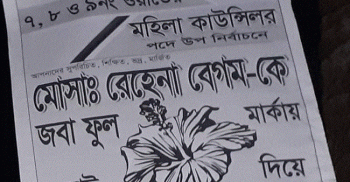 ৭, ৮ ও ৯নং ওয়ার্ডের
মহিলা কাউন্সিলর
পদে উপ নির্বাচনে
আপনাদের সুপরিচিত, শিক্ষিত, ভদ্র, মার্জিত
মোসাঃ রেহেনা বেগম-কে
জবা ফুল
মার্কায়
দিয়ে